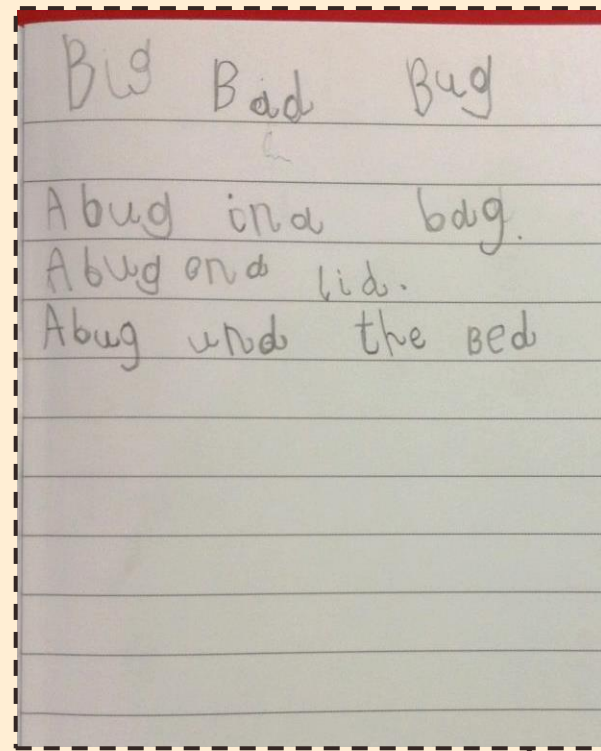 Big Bad Bug
A bug in a bag.
A bug on a lid.
A bug und the Bed